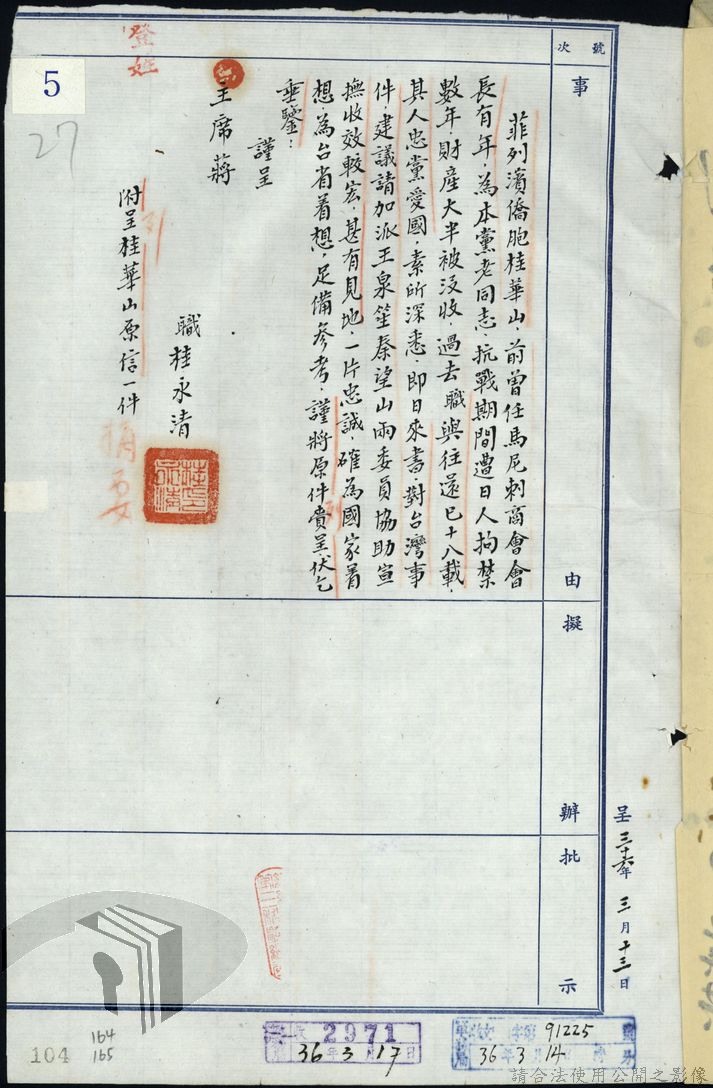 號次
事由
擬辦
批示
菲列濱僑胞桂華山,前曾任馬尼刺商會會
長有年,為本黨老同志,抗戰期間遭日人拘禁
數年,財產大半被沒收,過去職與往還已十八載,
其人忠黨愛國,素所深悉,即日來書,對台灣事
件建議請加派王泉笙秦望山兩委員協助宣
撫收效較宏,甚有見地,一片忠誠,確為國家着
想,為台省着想,足備參考,謹將原件賚呈伏乞
垂鑒:
謹呈
主席蔣
職桂永清
附呈桂華山原信一件
呈三十六年三月十三日
5
27
登姓
104
164
165
2971
36年3月17日
91225
36年3月14日
請合法使用公開之影像